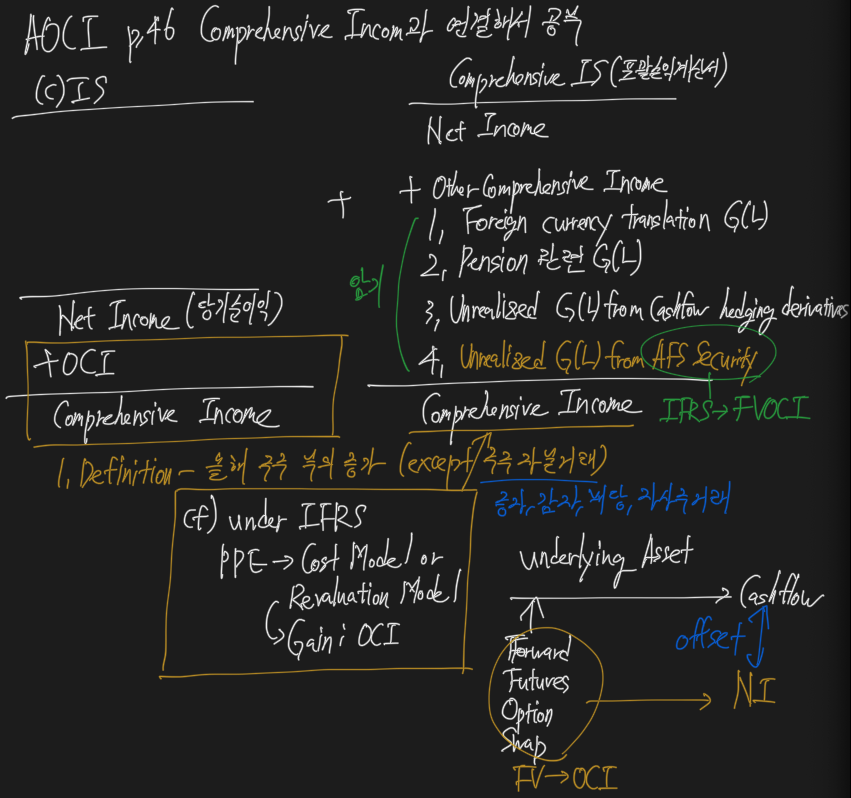 AOCI p.46 Comprehensive Incom과 연결해서 공부
(C)IS
Comprehensive IS (포괄손익계산서)
Net Income
+
+ Other Comprehensive Income
1, Foreign currency translation G(L)
2, Pension 관련 G(L)
3, Unrealized G(L) from Cashflow hedging derivatives
4, Unrealized G(L) from AFS Security
암기
IFRS → FVOCI
Comprehensive Income
Net Income (당기순이익)
+OCI
Comprehensive Income
1, Definition - 올해 주주 부의 증가 (except 주주 자본거래)
증자, 감자, 배당, 자사주거래
cf) under IFRS
PPE → Cost Model or
Revaluation Model
Gain: OCI
underlying Asset
→ Cashflow
offset
Forward
Futures
Option
Swap
→ NI
FV → OCI